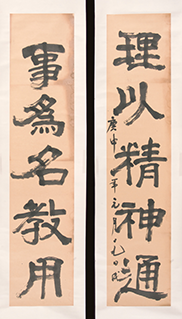 理以精神通
庚申年元月九日
事為名教用